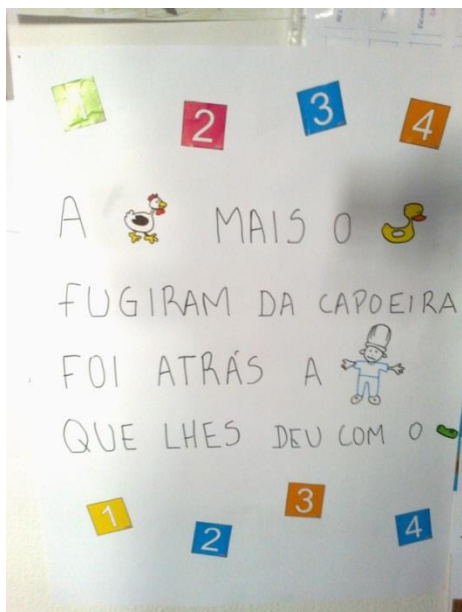 2 3 4
A MAIS O
FUGIRAM DA CAPOEIRA
FOI ATRÁS A
QUE LHES DEU COM O
1 2 3 4